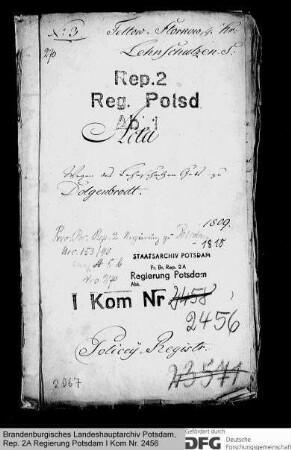 No 3 Teltow-Storkow. Kr.
Lehnschulzen S.
Rep.2
Reg. Potsd
Ab. 1
Acta
Wegen des Lehnschulzen Guts zu
Dolgenbrodt.
1809.
1810
Rep. 2 Regierung zu Potsdam
No 153/90
STAATSARCHIV POTSDAM
Pr. Br. Rep. 2 A
Regierung Potsdam
Abt.
I Kom Nr 2458
2456
Policey-Registr.
2067
Brandenburgisches Landeshauptarchiv Potsdam,
Rep. 2A Regierung Potsdam I Kom Nr. 2456
Gefördert durch
DFG Deutsche
Forschungsgemeinschaft